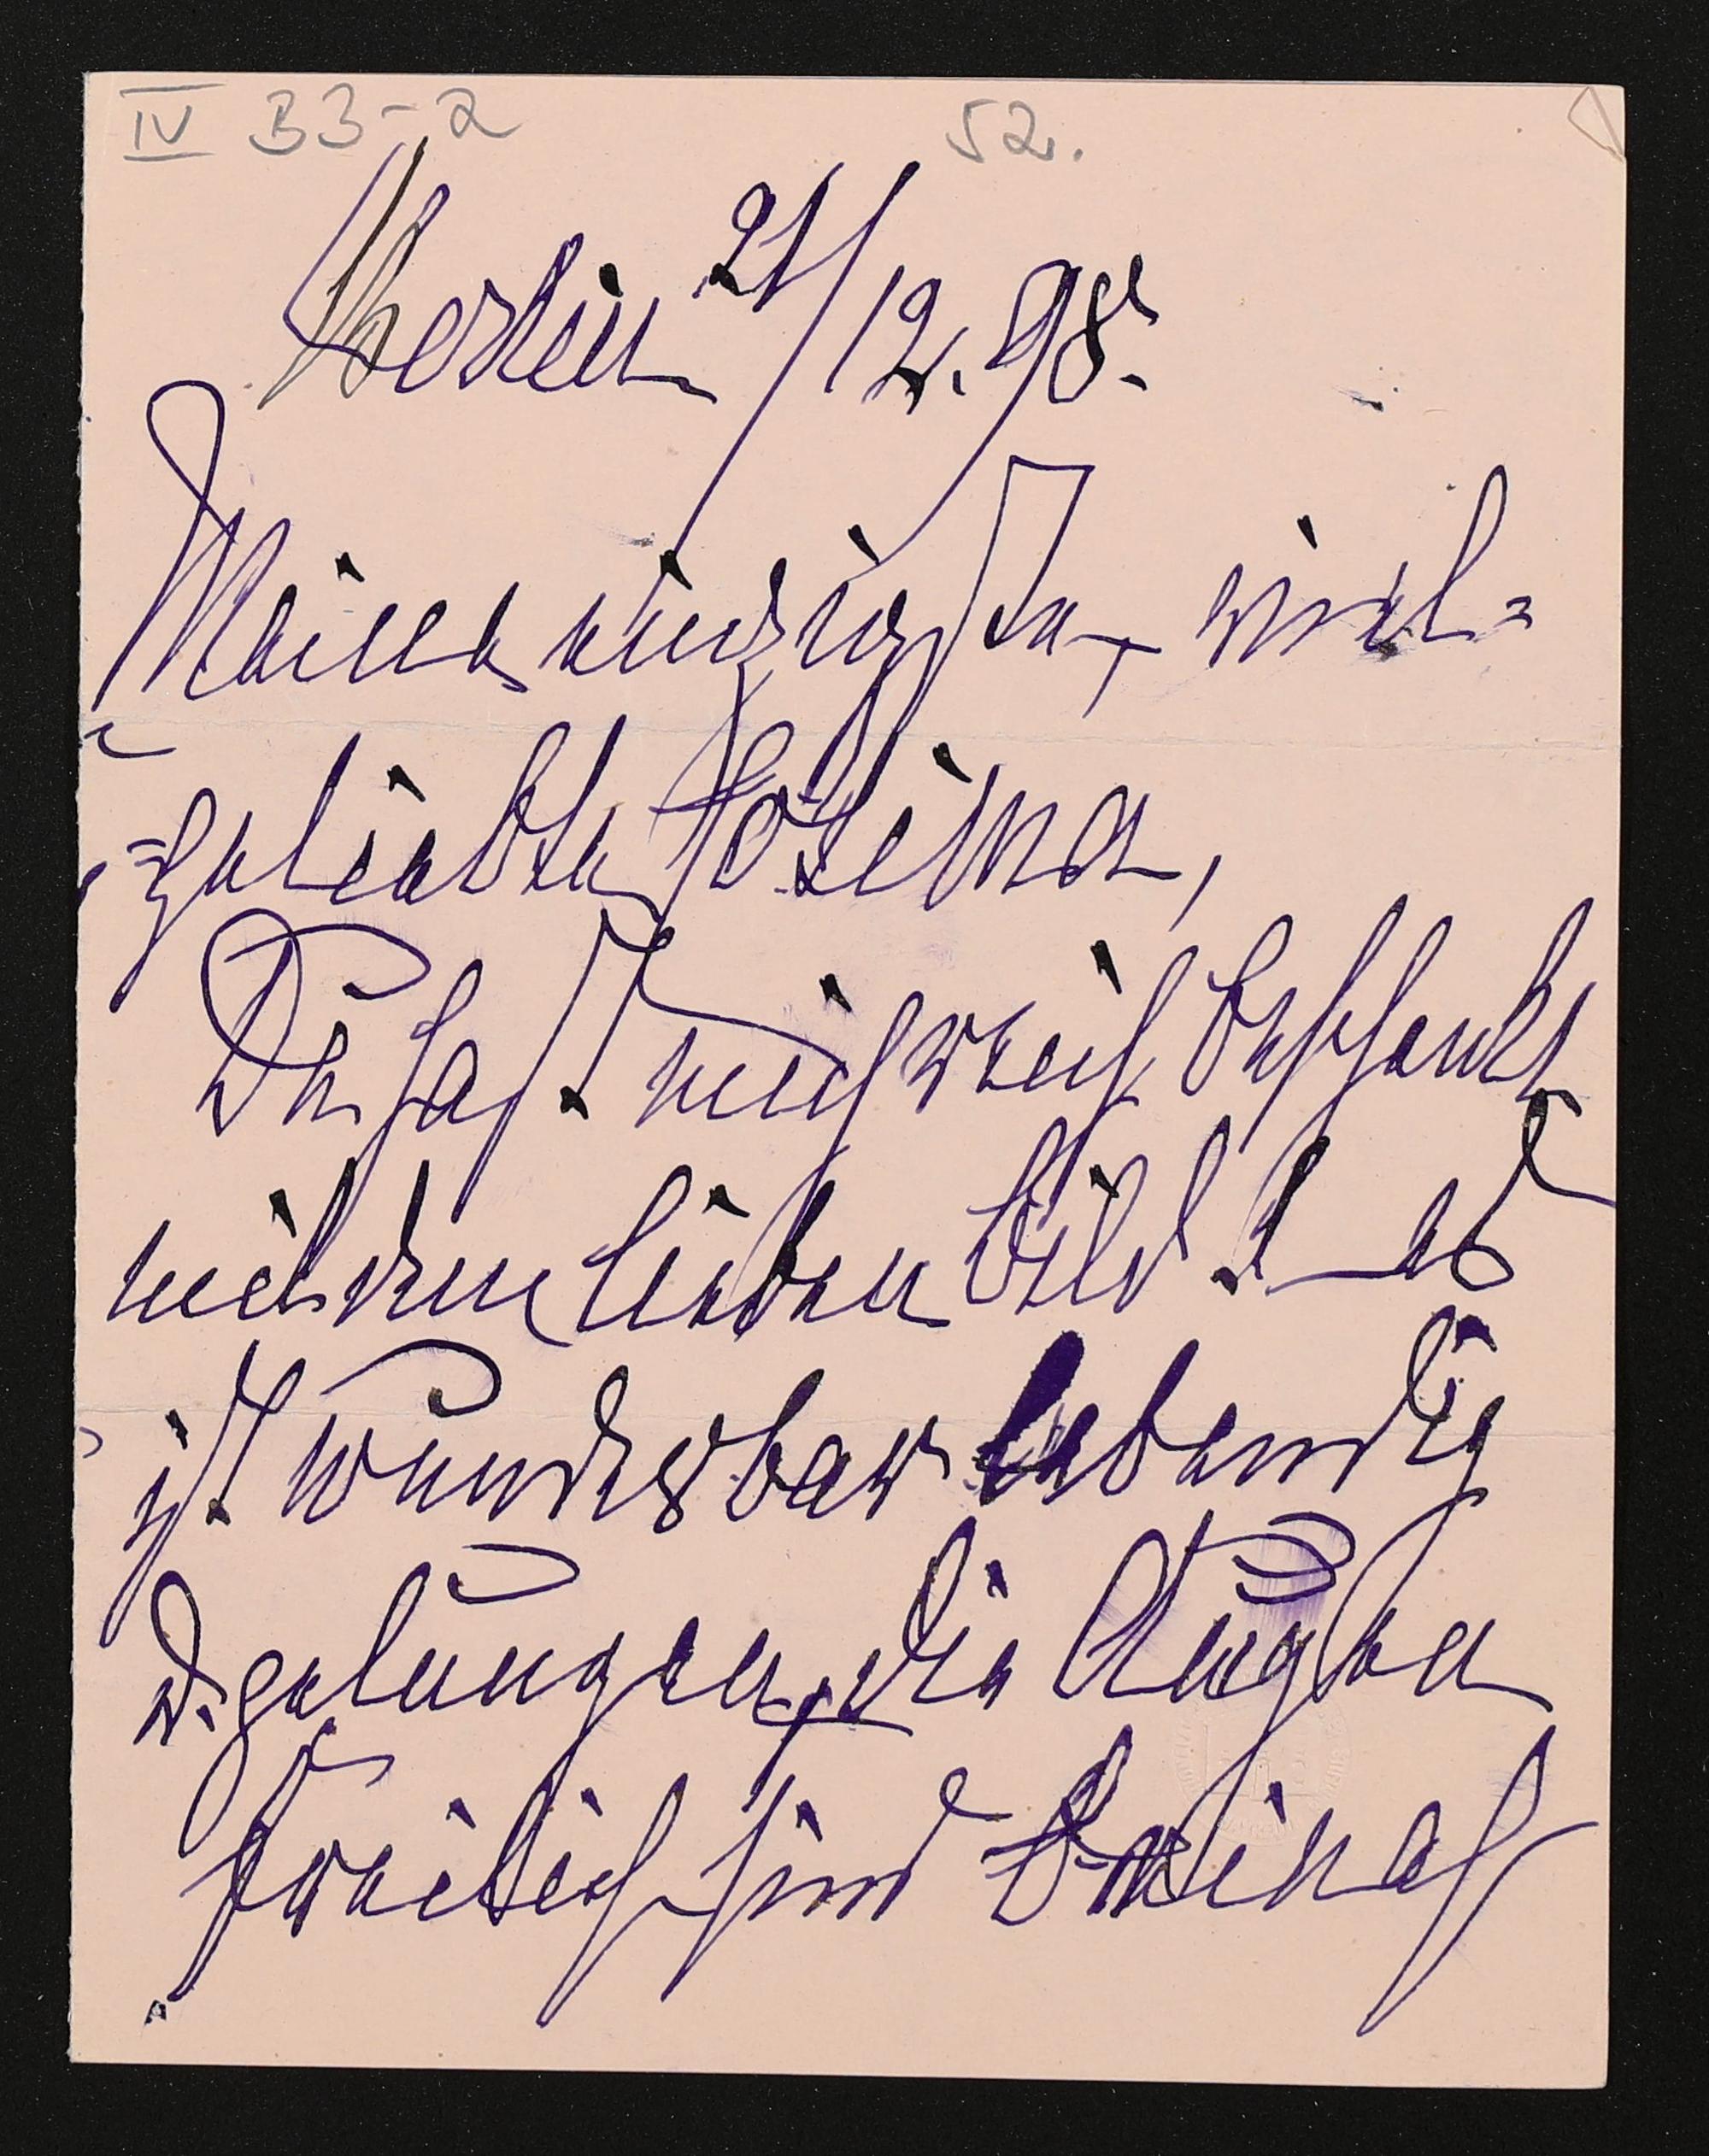 IV B3-2 52.
Berlin 21/12. 98.
Meine einzigste, viel=
=geliebte Cosima,
Du hast mich reich beschenkt
mit dem lieben Bild! es
ist wunderbar lebendig
u. gelungen, die Augen
freilich sind beinah